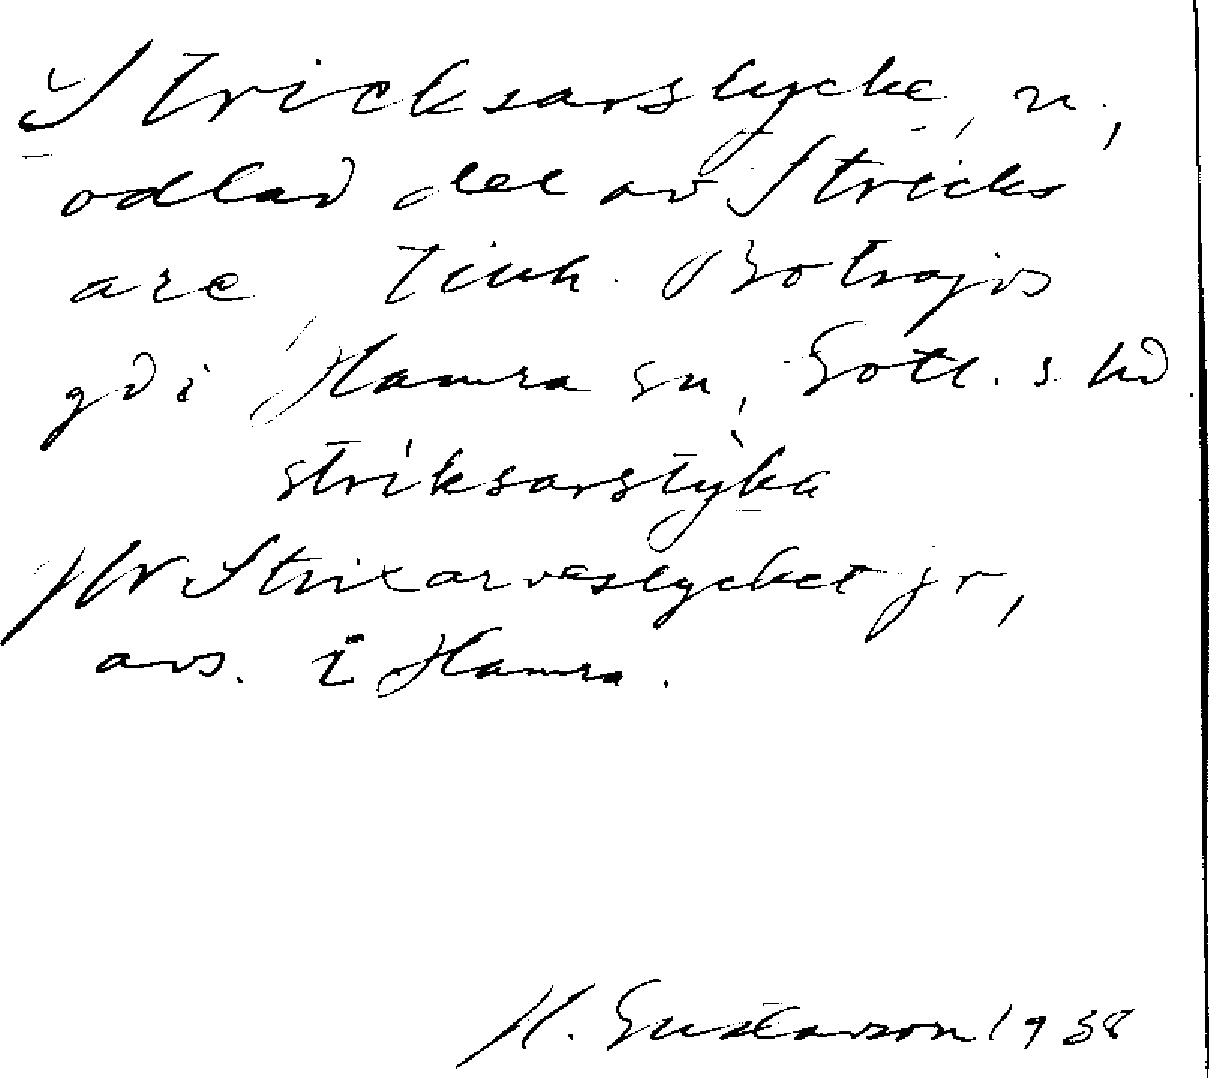 Stricksarstycke, n.,
odlad del av Stricks
are, tillh. Botvajvs
gd i Hamra sn, Gotl. s. hd.
striksarstyka
Jfr Strixarvestycket jr,
avs. i Hamra.
H. Gustavson 1938